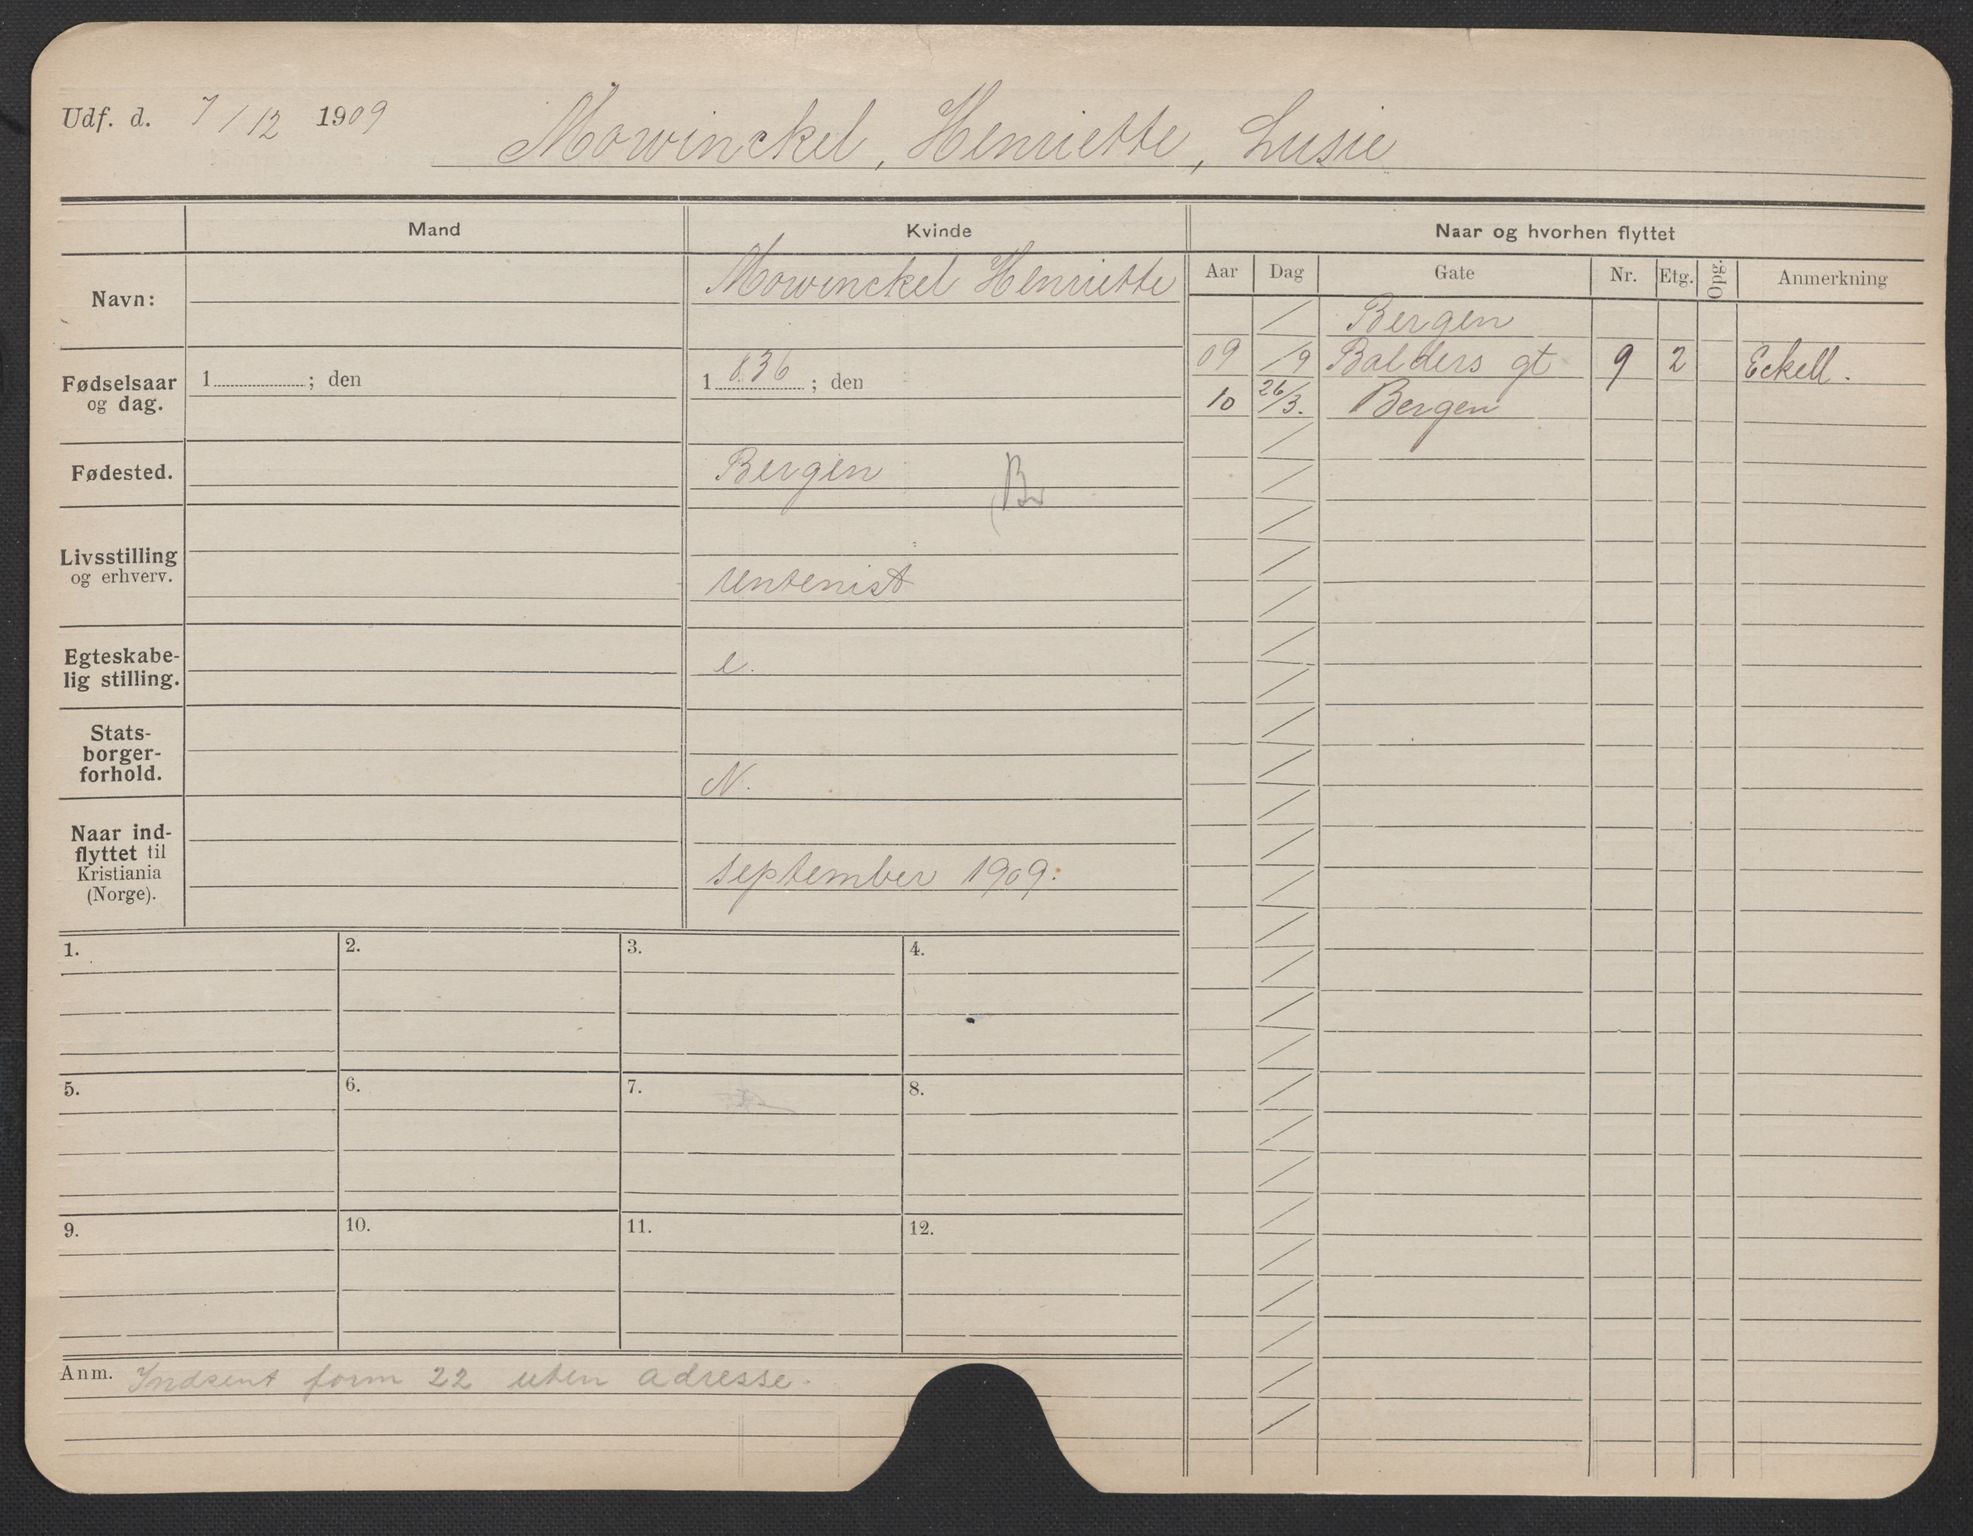 Udf. d. 7/12 1909 Mowinckel, Henriette, Lusie
Mand Kvinde Naar og hvorhen flyttet
Aar Dag Gate Nr. Etg. Opg. Anmerkning
Navn: Mowinckel Henriette
/ Bergen
09 /9 Balders gt 9 2 Eckell.
10 26/3. Bergen
Fødselsaar
og dag.
1 ; den
1 836 ; den
Fødested. Bergen Br
Livsstilling
og erhverv.
rentenist
Egteskabe-
lig stilling.
e.
Stats-
borger-
forhold.
N.
Naar ind-
flyttet til
Kristiania
(Norge).
september 1909.
1. 2. 3. 4.
5. 6. 7. 8.
9. 10. 11. 12.
Anm. Indsent form 22 uten adresse.